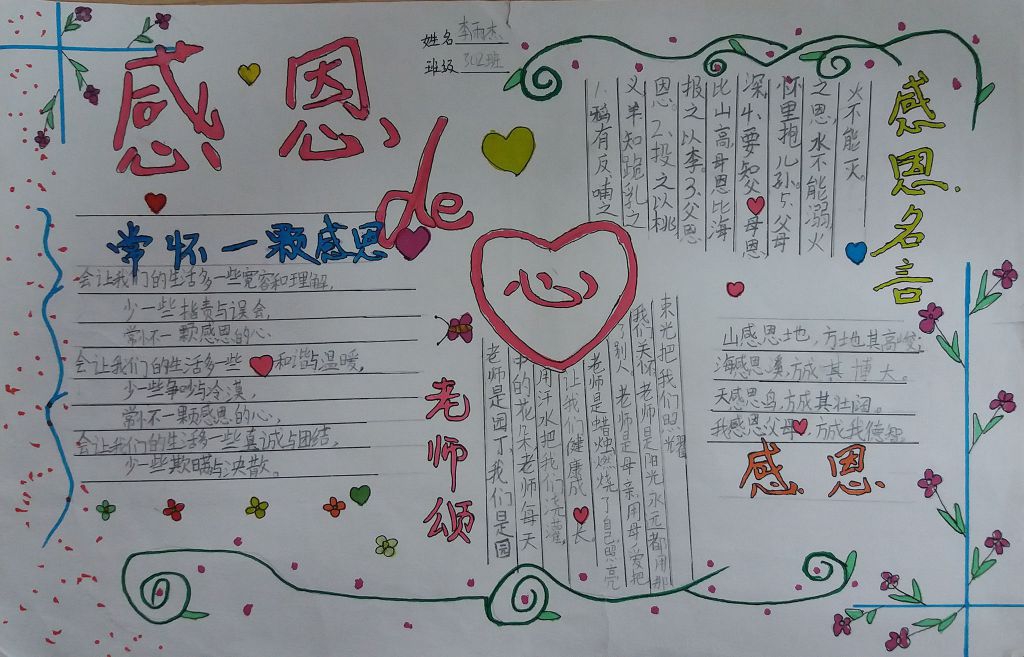 姓名 李雨杰
班级 302班
感恩
de
心
常怀一颗感恩
会让我们的生活多一些宽容和理解,
少一些指责与误会,
常怀一颗感恩的心,
会让我们的生活多一些和谐与温暖,
少一些争吵与冷漠,
常怀一颗感恩的心,
会让我们的生活多一些真诚与团结,
少一些欺瞒与涣散。
老师颂
老师是园丁,我们是园
中的花朵老师每天
用汗水把我们浇灌,
让我们健康成长。
老师是蜡烛燃烧了自己照亮
了别人 老师是母亲用母爱把
我们关怀 老师是阳光永远都用那
束光把我们照耀
感恩名言
1.鸦有反哺之
义羊知跪乳之
恩。2.投之以桃
报之以李。3.父恩
比山高,母恩比海
深。4.要知父母恩
怀里抱儿孙。5.父母
之恩,水不能溺,火
火不能灭。
山感恩土地,方成其高峻;
海感恩溪,方成其博大。
天感恩鸟,方成其壮阔。
我感恩父母,方成我德智。
感恩